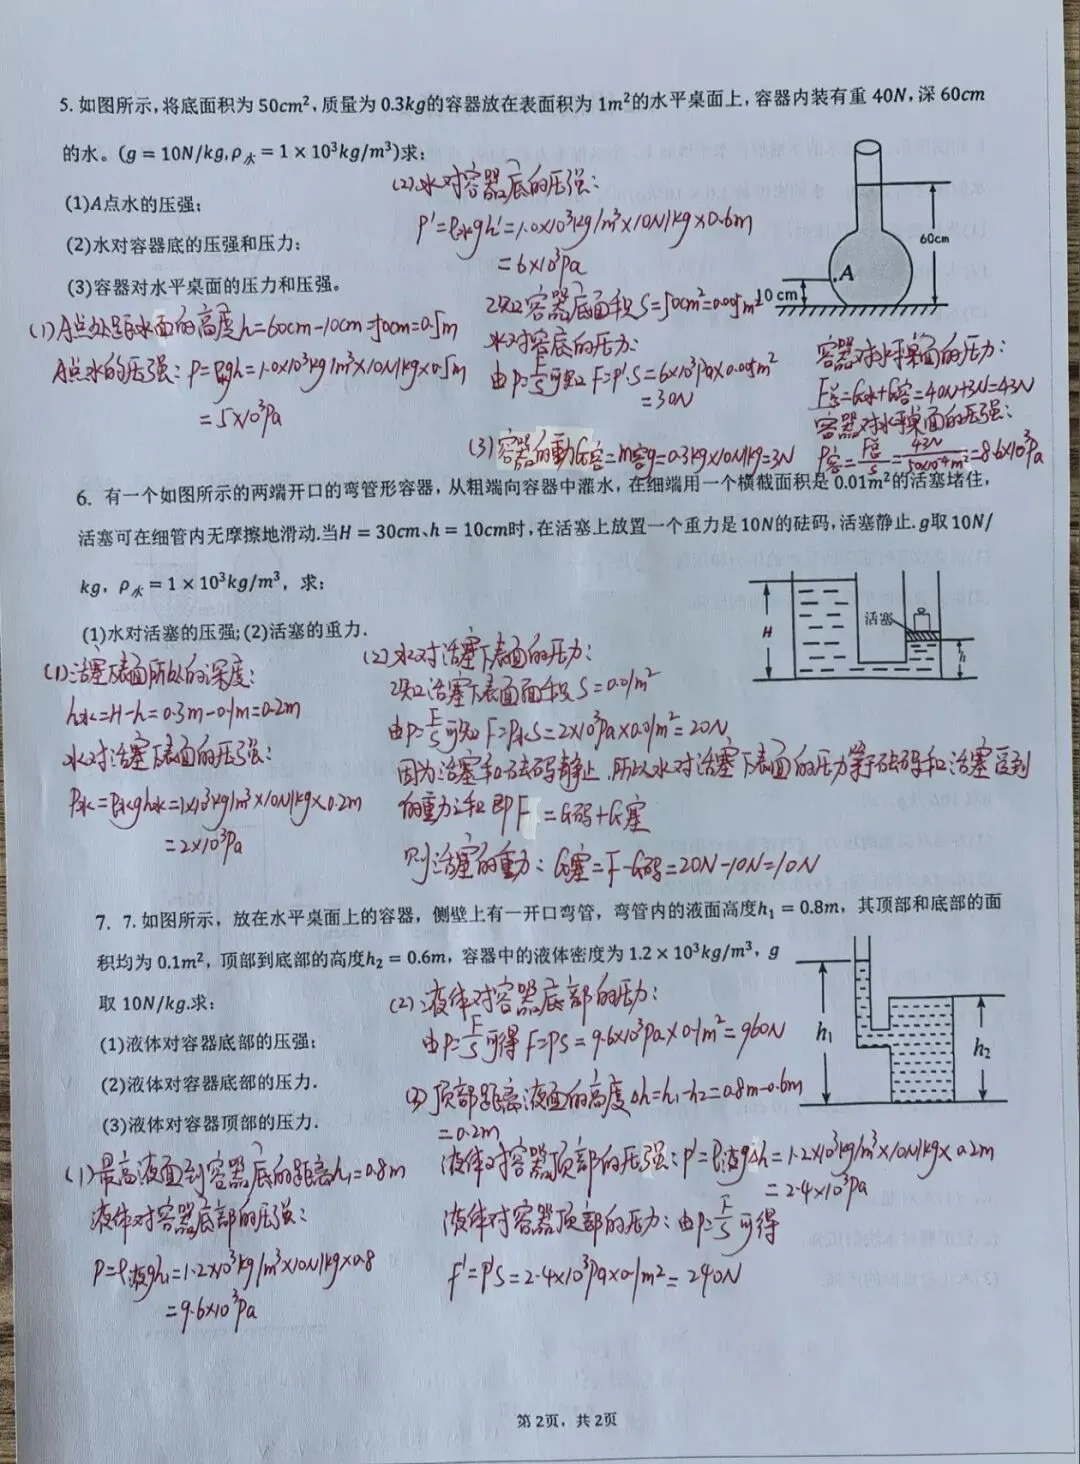 5. 如图所示,将底面积为50cm²,质量为0.3kg的容器放在表面积为1m²的水平桌面上,容器内装有重40N,深60cm
的水。(g = 10N/kg,ρ水 = 1 × 10³kg/m³)求:
(1)A点水的压强;
(2)水对容器底的压强和压力:
(3)容器对水平桌面的压力和压强。
60cm
A
10 cm
(1)A点处距水面的高度h=60cm-10cm=50cm=0.5m
A点水的压强:P=ρgh=1.0×10³kg/m³×10N/kg×0.5m
=5×10³Pa
(2)水对容器底的压强:
P'=ρ水gh'=1.0×10³kg/m³×10N/kg×0.6m
=6×10³Pa
已知容器底面积S=50cm²=0.005m²
水对容底的压力:
由P=F/S可知F=P'·S=6×10³Pa×0.005m²
=30N
(3)容器的重力G容=m容g=0.3kg×10N/kg=3N
容器对水平桌面的压力:
F总=G水+G容=40N+3N=43N
容器对水平桌面的压强:
P容=F总/S=43N/50×10⁻⁴m²=8.6×10³Pa
6. 有一个如图所示的两端开口的弯管形容器,从粗端向容器中灌水,在细端用一个横截面积是0.01m²的活塞堵住,
活塞可在细管内无摩擦地滑动.当H = 30cm、h = 10cm时,在活塞上放置一个重力是10N的砝码,活塞静止.g取10N/
kg,ρ水 = 1 × 10³kg/m³,求:
(1)水对活塞的压强;(2)活塞的重力.
H
活塞
h
(1)活塞下表面所处的深度:
h水=H-h=0.3m-0.1m=0.2m
水对活塞下表面的压强:
P水=ρ水gh水=1×10³kg/m³×10N/kg×0.2m
=2×10³Pa
(2)水对活塞下表面的压力:
已知活塞下表面面积S=0.01m²
由P=F/S可知F=P水S=2×10³Pa×0.01m²=20N
因为活塞和砝码静止.所以水对活塞下表面的压力等于砝码和活塞受到
的重力之和即F=G码+G塞
则活塞的重力:G塞=F-G码=20N-10N=10N
7. 7.如图所示,放在水平桌面上的容器,侧壁上有一开口弯管,弯管内的液面高度h₁ = 0.8m,其顶部和底部的面
积均为0.1m²,顶部到底部的高度h₂ = 0.6m,容器中的液体密度为1.2 × 10³kg/m³,g
取10N/kg.求:
(1)液体对容器底部的压强;
(2)液体对容器底部的压力.
(3)液体对容器顶部的压力.
h₁
h₂
(1)最高液面到容器底的距离h₁=0.8m
液体对容器底部的压强:
P=ρ液gh₁=1.2×10³kg/m³×10N/kg×0.8
=9.6×10³Pa
(2)液体对容器底部的压力:
由P=F/S可得F=PS=9.6×10³Pa×0.1m²=960N
(3)顶部距离液面的高度Δh=h₁-h₂=0.8m-0.6m
=0.2m
液体对容器顶部的压强:P'=ρ液gΔh=1.2×10³kg/m³×10N/kg×0.2m
=2.4×10³Pa
液体对容器顶部的压力:由P=F/S可得
F'=P'S=2.4×10³Pa×0.1m²=240N
第2页,共2页